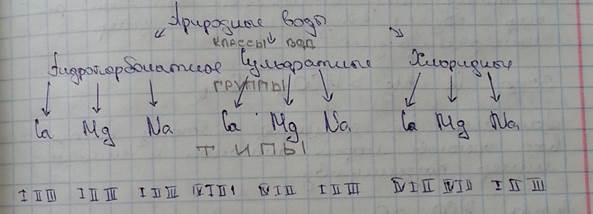 Природные воды
классы вод
Гидрокарбонатное Сульфатные Хлоридные
группы
Ca Mg Na Ca Mg Na Ca Mg Na
типы
I II III I II III I II III IV II II I II III IV I II I II III